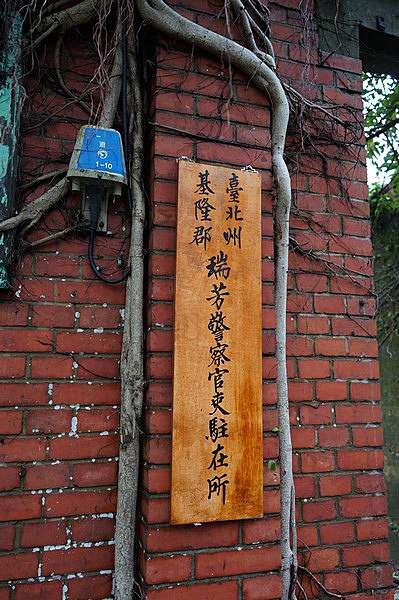 臺北州
基隆郡
瑞芳警察官吏駐在所
1-10